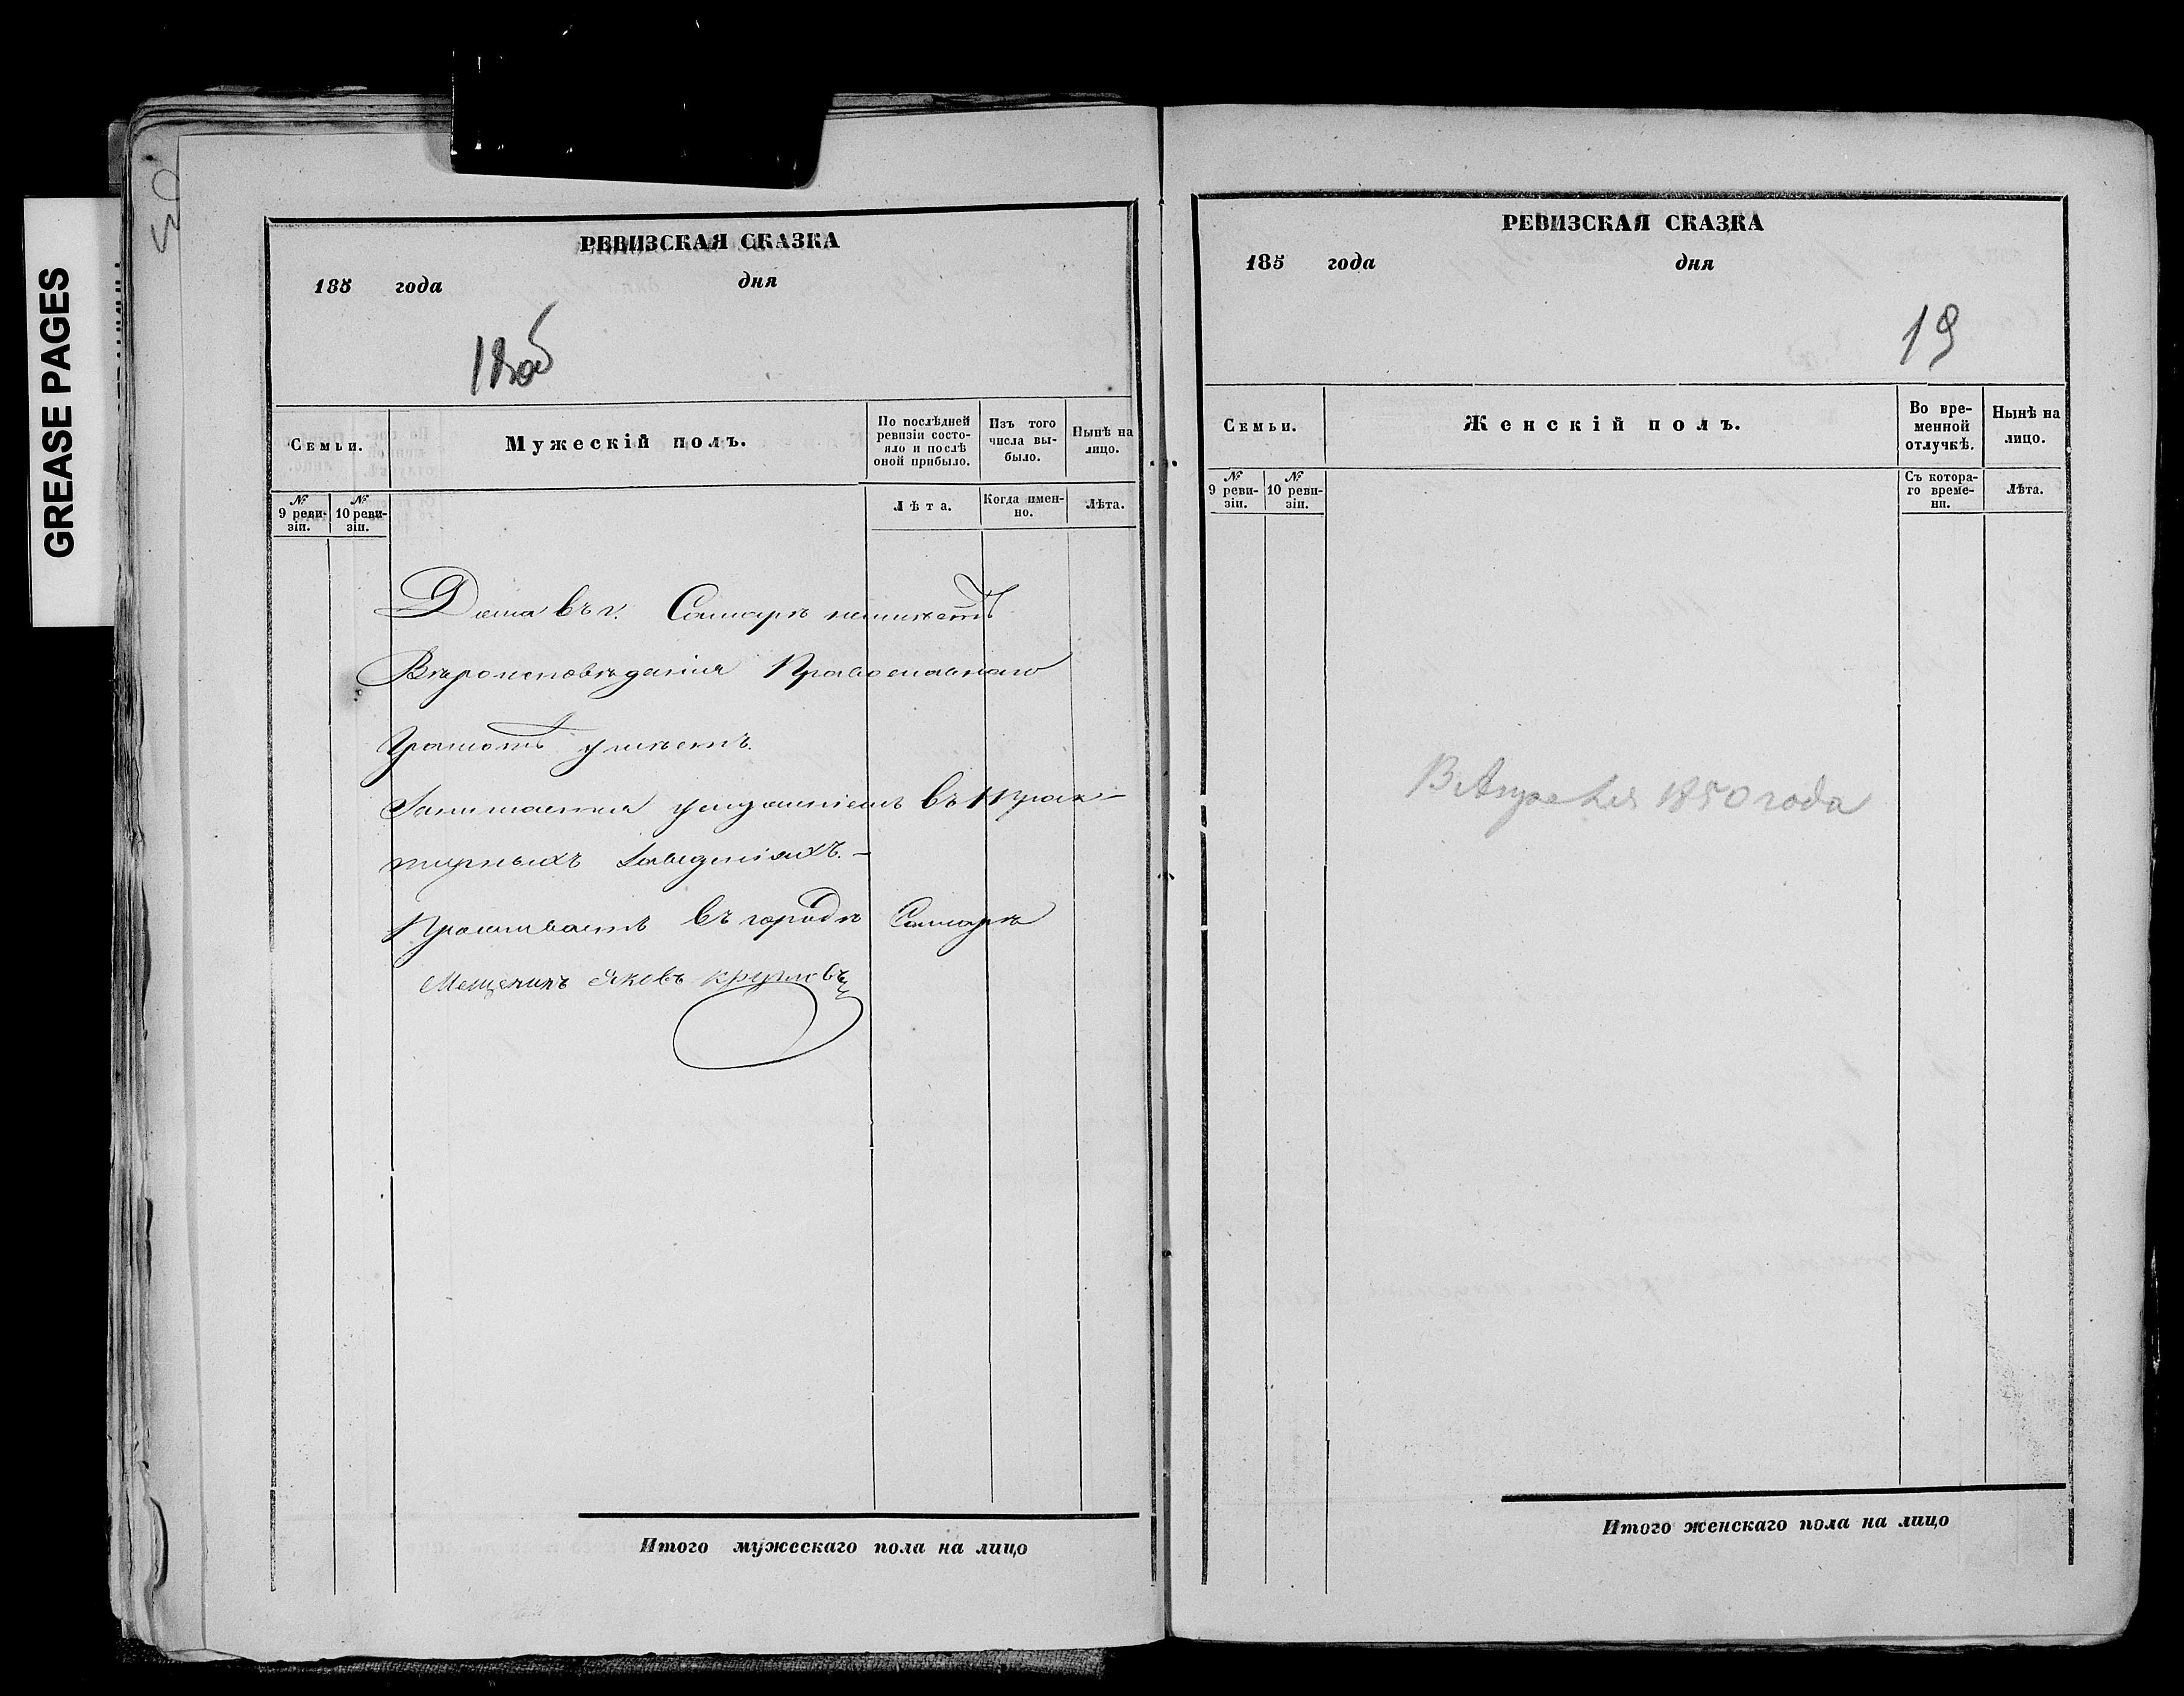 GREASE PAGES
РЕВИЗСКАЯ СКАЗКА
185 года дня
18об
Семьи.
Мужескій полъ.
По послѣдней ревизіи состояло и послѣ оной прибыло.
Изъ того числа выбыло.
Нынѣ на лицо.
№ 9 ревизіи.
№ 10 ревизіи.
Лѣта.
Когда именно.
Лѣта.
Дома въ г. Самарѣ неимѣетъ
Вѣроисповѣданія Православнаго
Грамотѣ умѣетъ.
Занимается услуженіемъ въ трак-
тирныхъ Заведеніяхъ.—
Проживаетъ въ городѣ Самарѣ
Мещенинъ Яковъ Кругловъ
Итого мужескаго пола на лицо
РЕВИЗСКАЯ СКАЗКА
185 года дня
19
Семьи.
Женскій полъ.
Во временной отлучкѣ.
Нынѣ на лицо.
№ 9 ревизіи.
№ 10 ревизіи.
Съ котораго времени.
Лѣта.
Апреля 1850 года
Итого женскаго пола на лицо